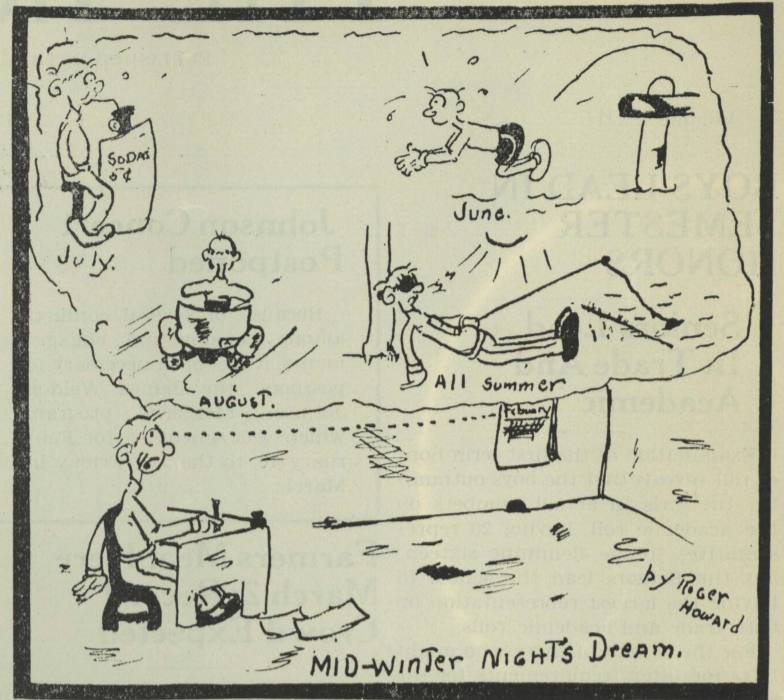 SODAS
5¢
July.
June.
AUGUST.
All Summer
Febuary
by Roger
Howard
MID-WINTER NIGHTS DREAM.